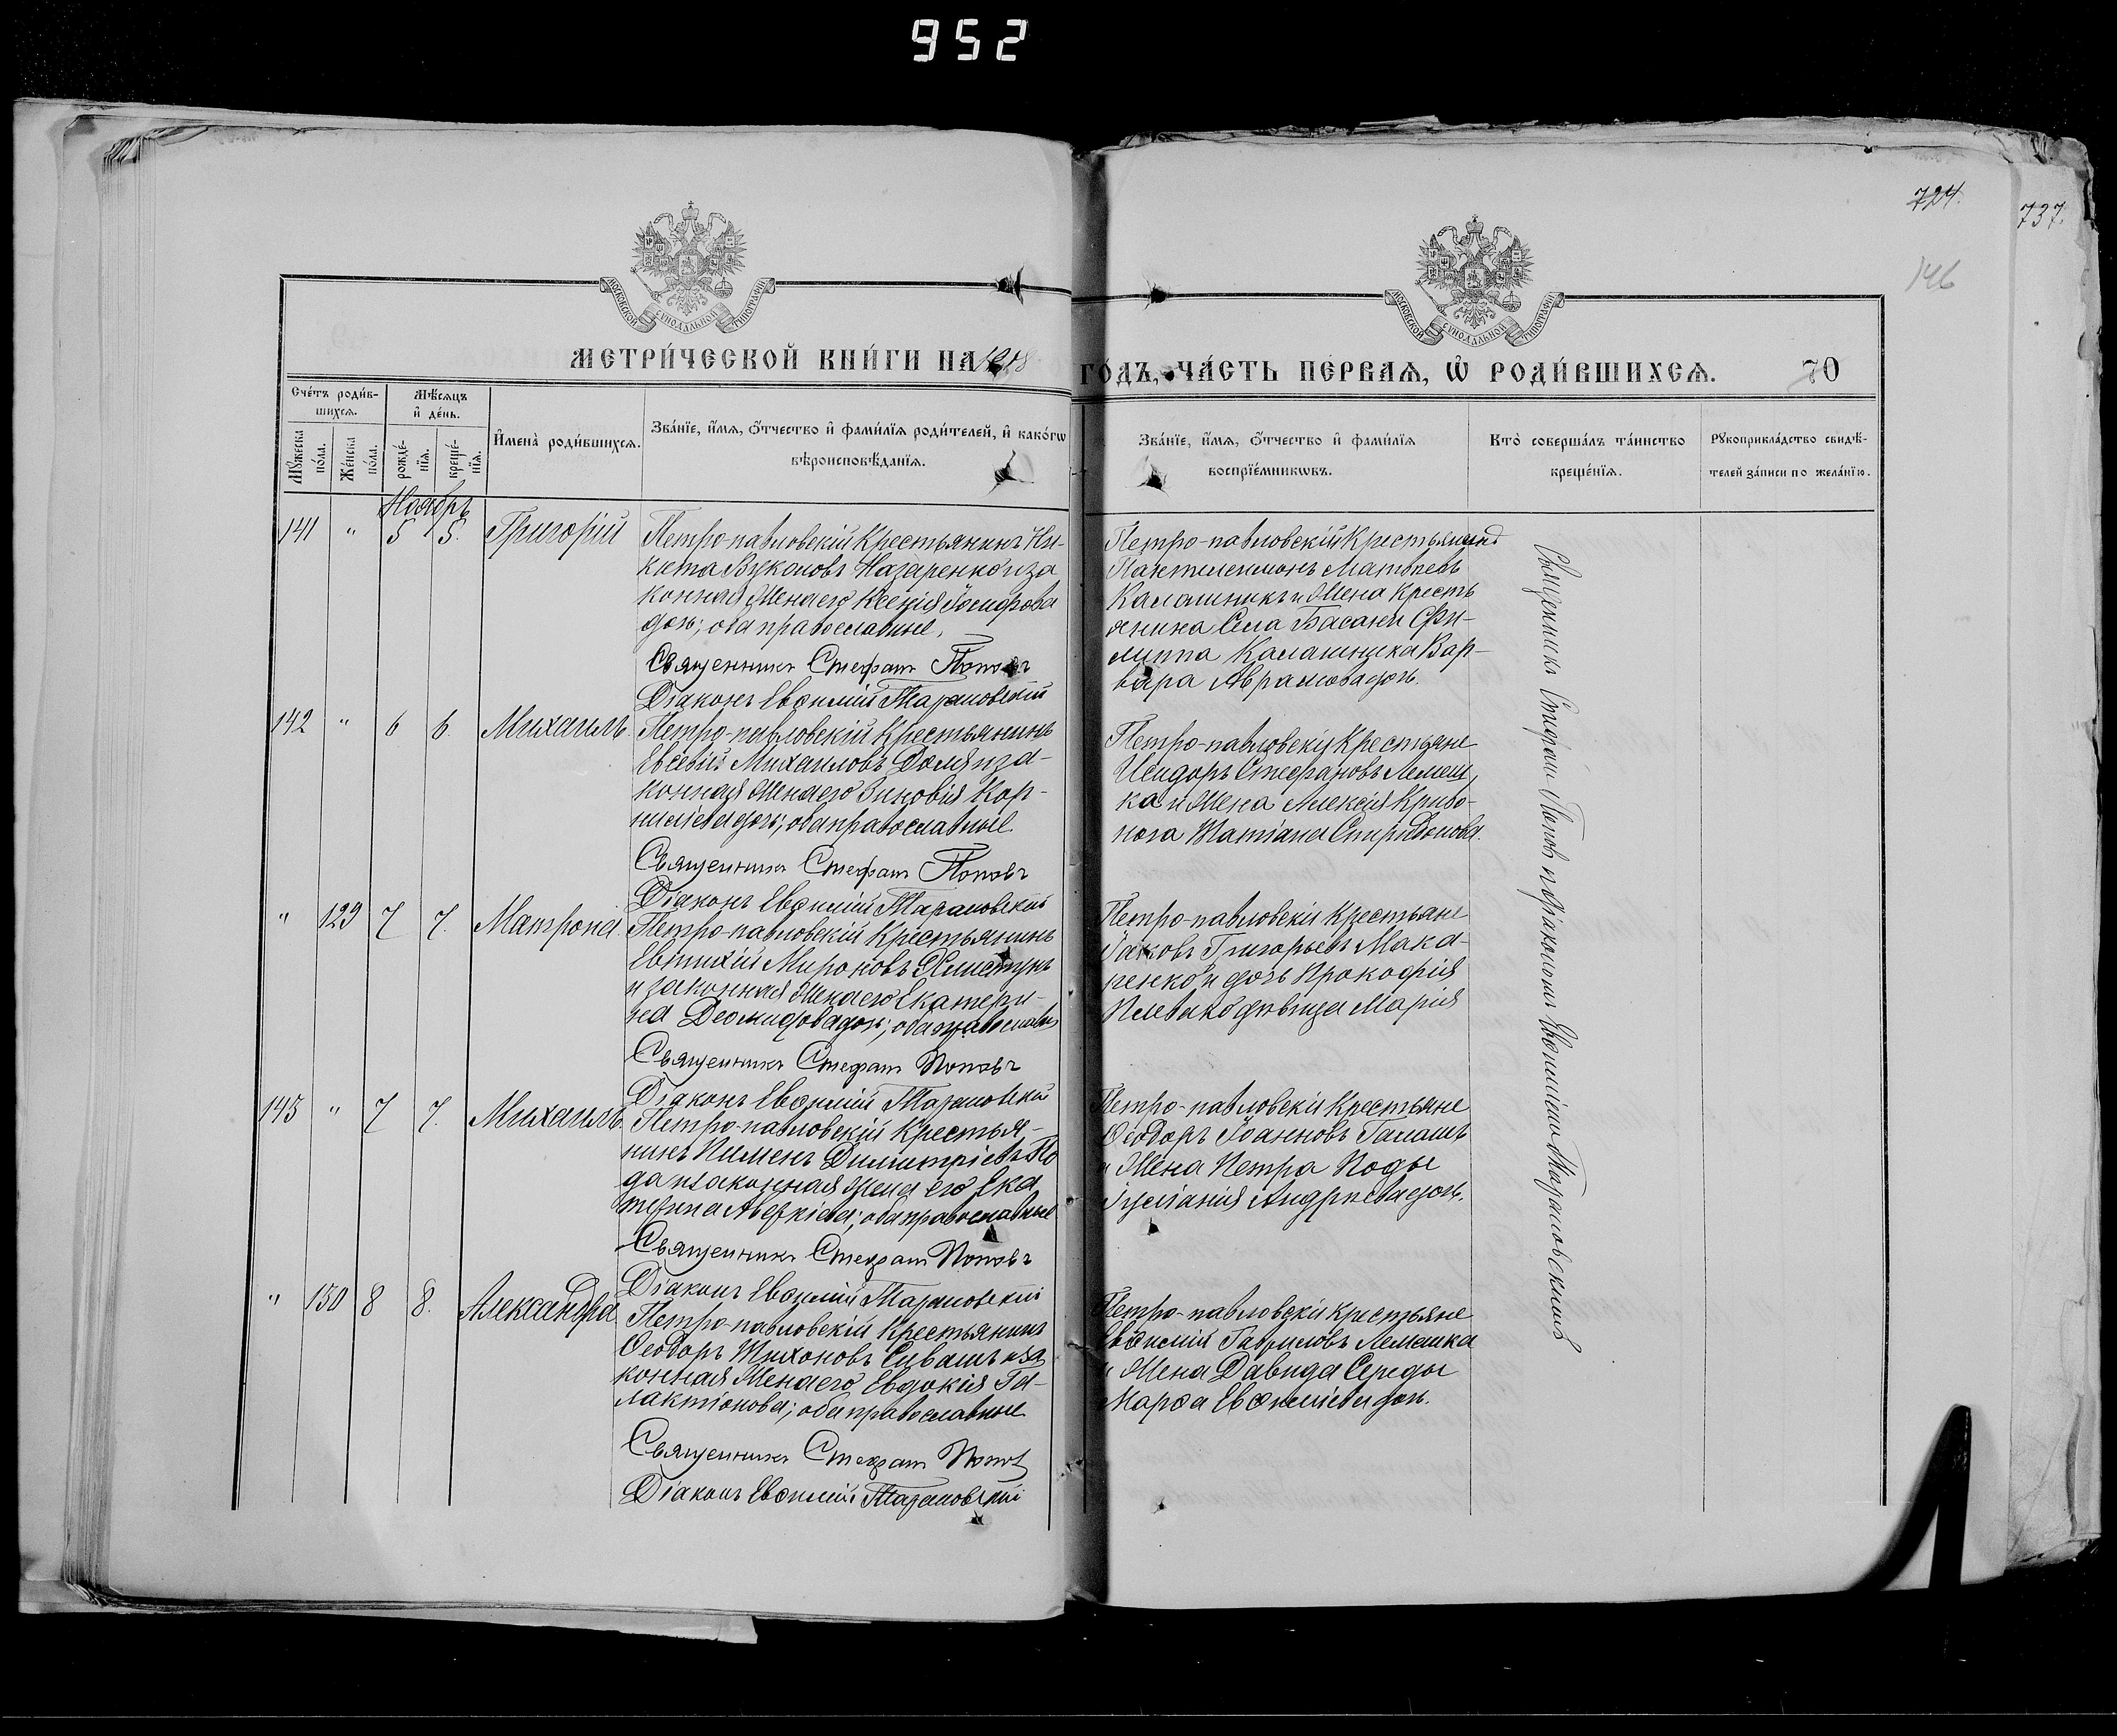 952
724.
737.
146
МОСКОВСКОЙ СУНОДАЛЬНОЙ ТИПОГРАФІИ
МОСКОВСКОЙ СУНОДАЛЬНОЙ ТИПОГРАФІИ
МЕТРИ́ЧЕСКОЙ КНИ́ГИ НА
ГО́ДЪ, ЧА́СТЬ ПЕ́РВАѦ, Ѡ҆ РОДИ́ВШИХСѦ.
70
Сче́тъ роди́в-
шихсѧ.
Мꙋ́жеска по́ла.
Же́нска по́ла.
Мѣ́сѧцъ
и҆ де́нь.
рожде́-
нїѧ.
креще́-
нїѧ.
И҆мена̀ роди́вшихсѧ.
Зва́нїе, и҆́мѧ, ѻ҆́тчество и҆ фами́лїѧ роди́телей, и҆ како́гѡ
вѣроисповѣ́данїѧ.
Зва́нїе, и҆́мѧ, ѻ҆́тчество и҆ фами́лїѧ
воспрїе́мникѡвъ.
Кто̀ соверша́лъ та́инство
креще́нїѧ.
Рꙋкоприкла́дство свидѣ́-
телей за́писи по жела́нїю.
Ноябрь
141 " 5 5. Григорій
Петро-павловскій Крестьянинъ Ни-
кита Вуколовъ Назаренко и за
конная Жена его Ксенія Іосифова
дочь; оба православные.
Священникъ Стефанъ Поповъ
Діаконъ Евѳимій Тарановскій
Петро-павловскій Крестьянинъ
Пантелеимонъ Матвѣевъ
Калашникъ и Жена Кресть
янина Села Басани Фи-
липпа Калашника Вар-
вара Аврамова дочь.
142 " 6 6. Михаилъ.
Петро-павловскій Крестьянинъ
Евсевій Михаиловъ Доля и за-
конная Жена его Зиновія Кор-
ниліева дочь; оба православные.
Священникъ Стефанъ Поповъ
Діаконъ Евѳимій Тарановскій
Петро-павловскія Крестьяне
Исидоръ Стефановъ Лемеш
ка и Жена Алексія Криво-
носа Татіана Спиридонова.
" 129 7 7. Матрона.
Петро-павловскій Крестьянинъ
Евтихій Мироновъ Хлистунъ
и законная Жена его Екатери-
на Деомидова дочь; оба православн
Священникъ Стефанъ Поповъ
Діаконъ Евѳимій Тарановскій
Петро-павловскія Крестьяне
Іаковъ Григорьевъ Мака-
ренко и дочь Прокофія
Плевако дѣвица Марія
143 " 7 7. Михаилъ.
Петро-павловскій Крестья-
нинъ Пименъ Димитріевъ По
да и законная Жена его Ека
терина Аверкіева; оба православные
Священникъ Стефанъ Поповъ
Діаконъ Евѳимій Тарановскій
Петро-павловскія Крестьяне
Ѳеодоръ Іоанновъ Галашъ
и Жена Петра Поды
Іуліанія Андріева дочь.
" 130 8 8. Александра
Петро-павловскій Крестьянинъ
Ѳеодоръ Тихоновъ Сивашъ и за
конная Жена его Евдокія Га-
лактіонова; оба православные
Священникъ Стефанъ Поповъ
Діаконъ Евѳимій Тарановскій
Петро-павловскія Крестьяне
Евѳимій Гавриловъ Лемешка
и Жена Давида Середы
Марѳа Евѳиміева дочь.
Священникъ Стефанъ Поповъ съ діакономъ Евѳиміемъ Тарановскимъ